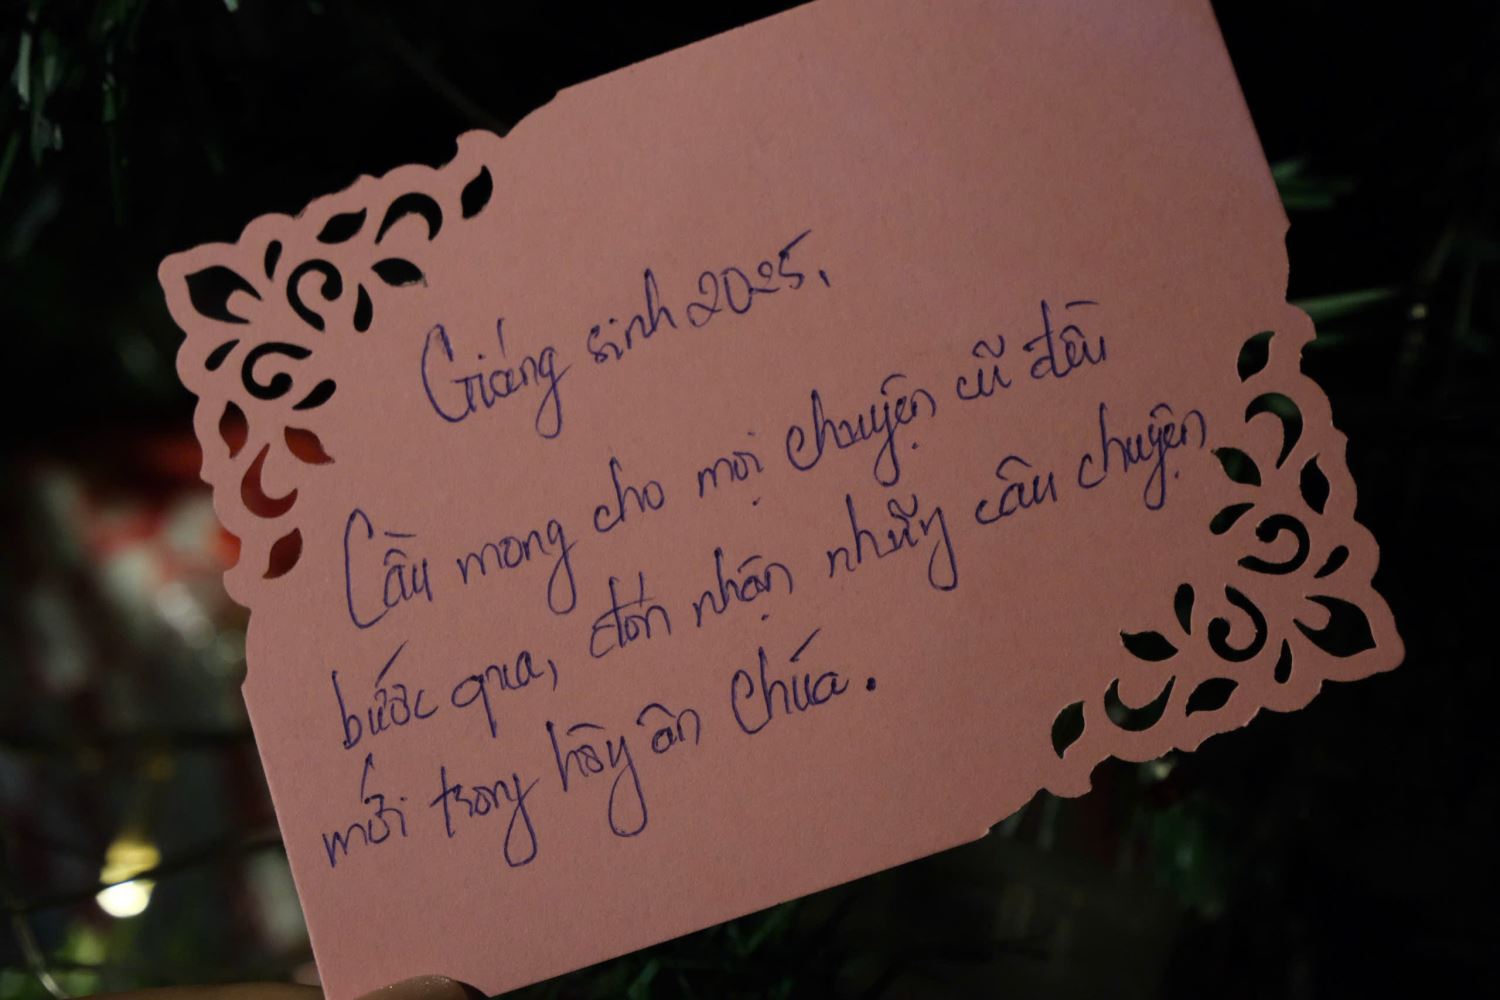 Giáng sinh 2025.
Cầu mong cho mọi chuyện cũ đều
bước qua, đón nhận những câu chuyện
mới trong hồng ân Chúa.